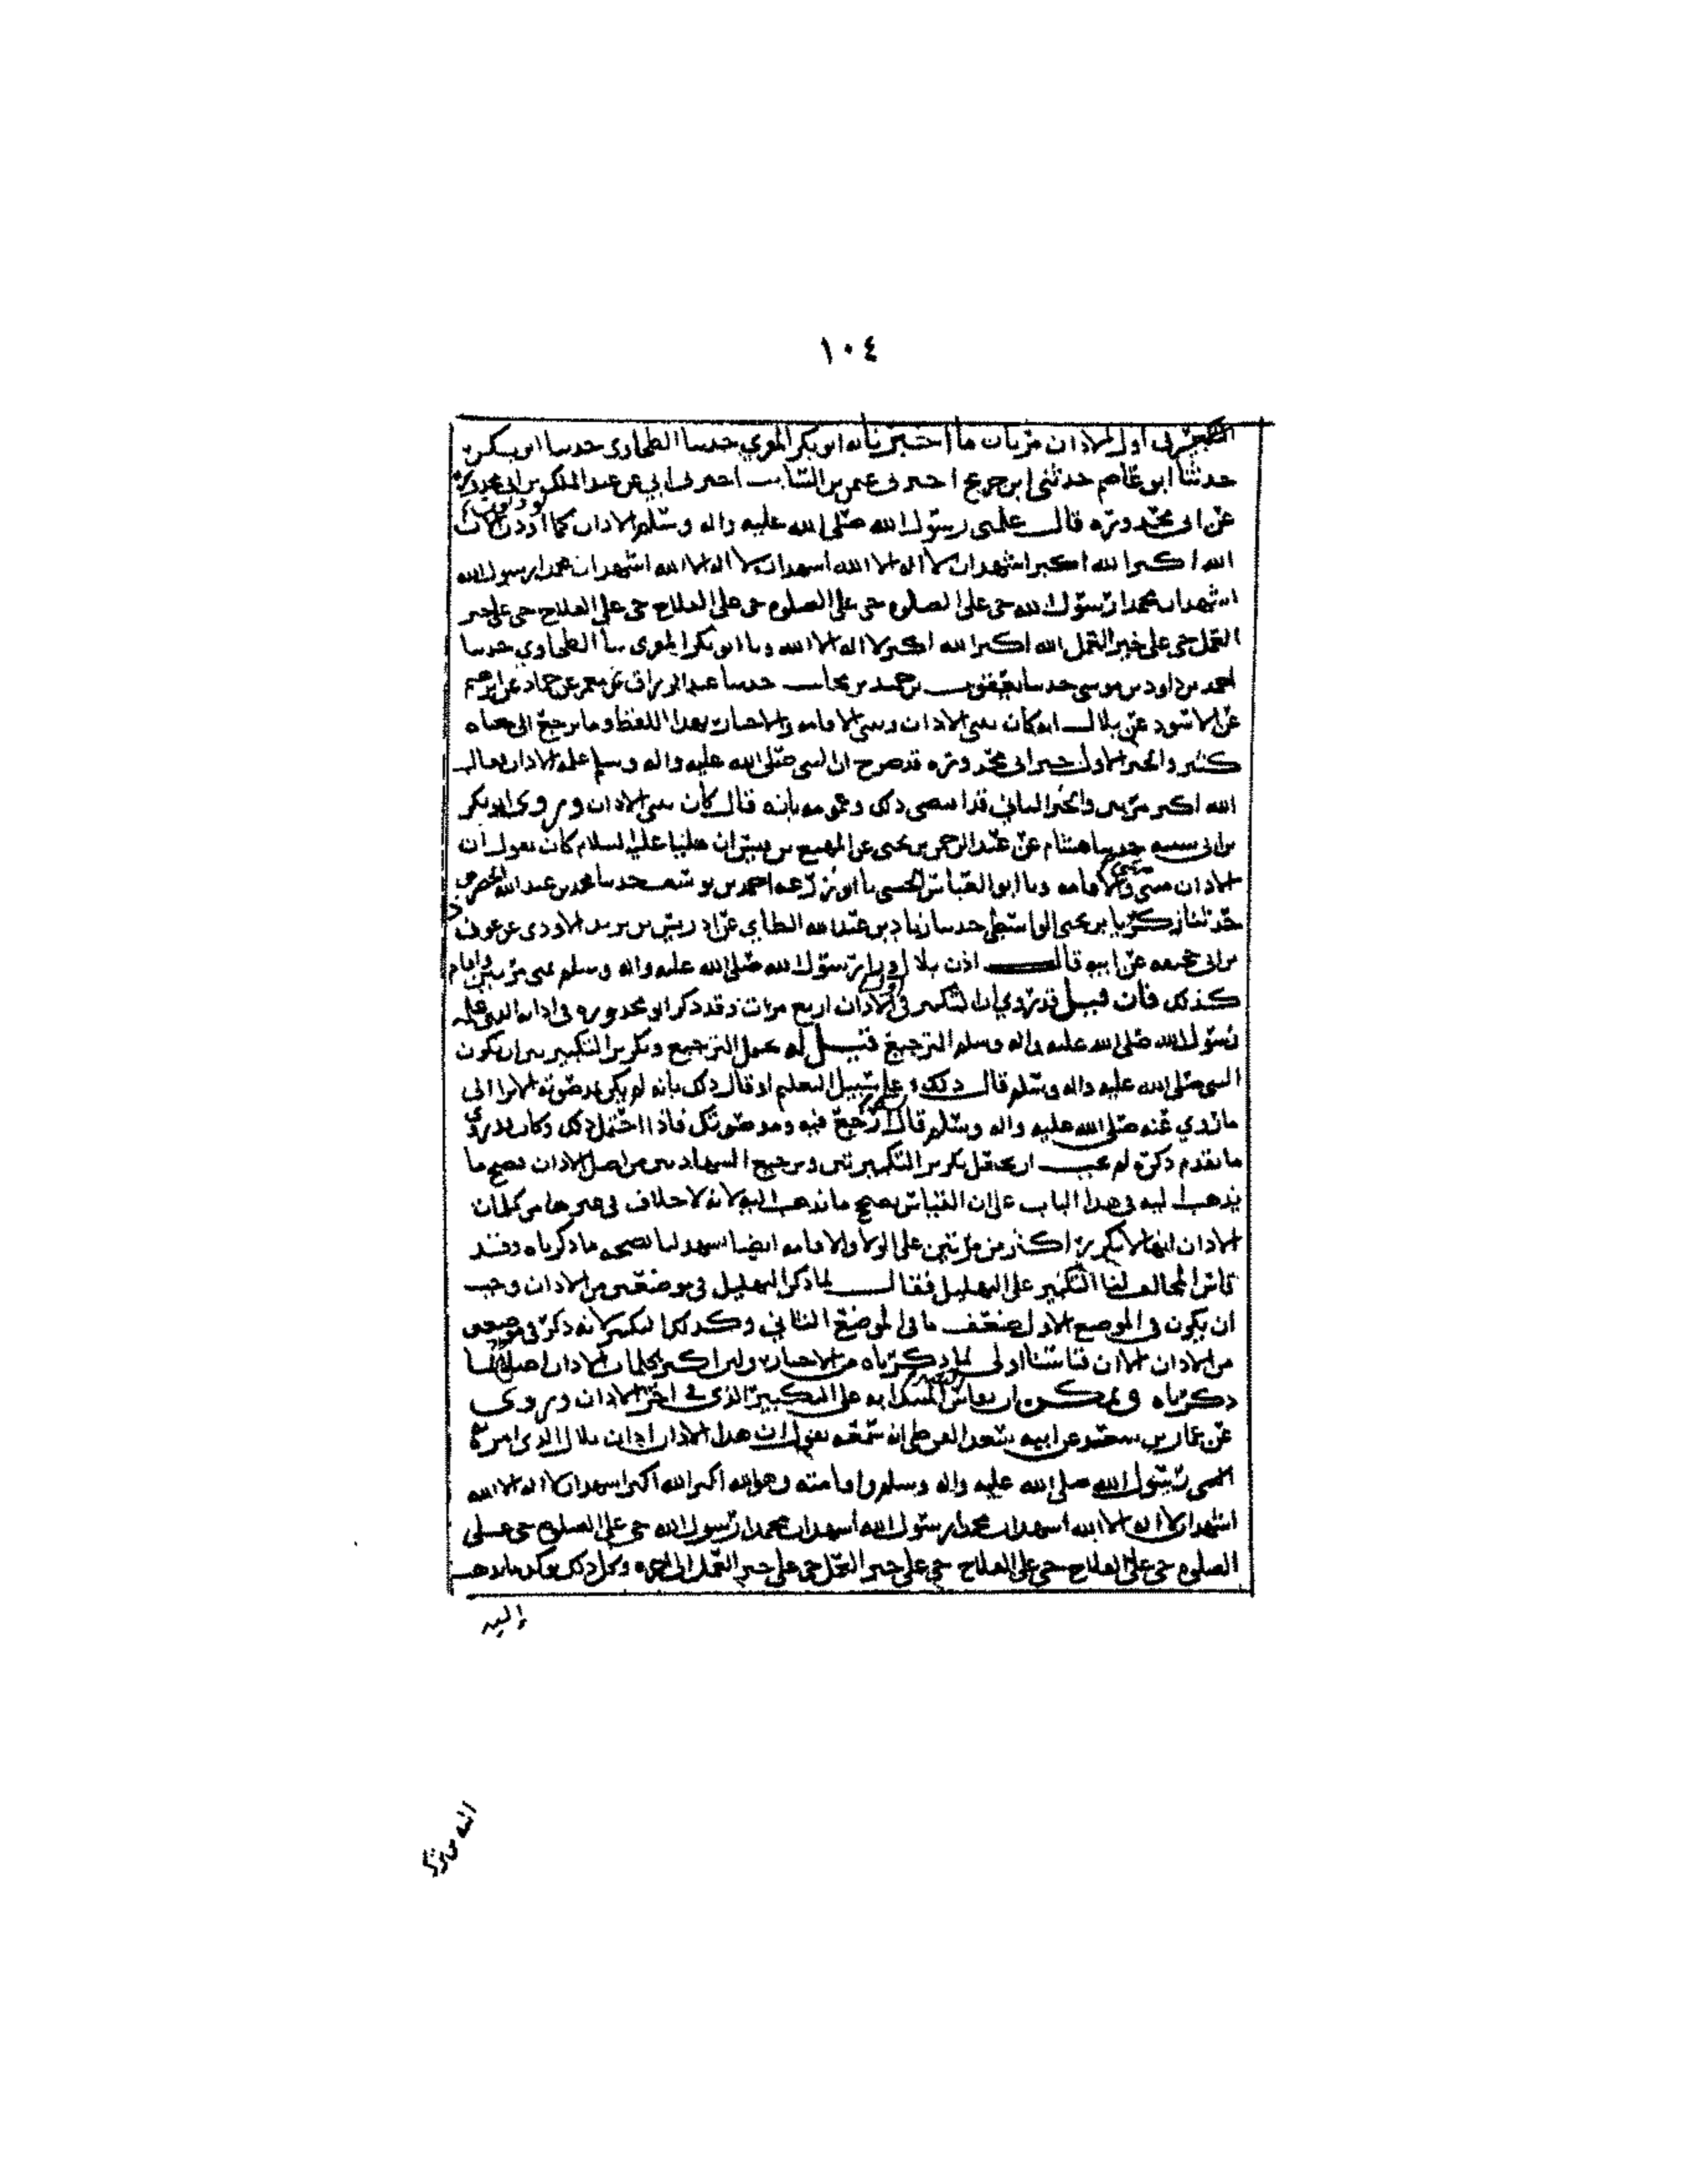 ١٠٤
التكبير في اول الاذان مرتان ما اخبرنا به ابو بكر المقري حدثنا الطحاوي حدثنا ابو بكرة
حدثنا ابو عاصم حدثني ابن جريج اخبرني عثمن بن السائب اخبرني ابي عن عبد الملك بن ابي محذورة
عن ابي محذورة قال علمني رسول الله صلى الله عليه واله وسلم الاذان كما اذن الان
الله اكبر الله اكبر اشهد ان لا اله الا الله اشهد ان لا اله الا الله اشهد ان محمدا رسول الله
اشهد ان محمدا رسول الله حي على الصلوه حي على الصلوه حي على الفلاح حي على الفلاح حي على خير
العمل حي على خير العمل الله اكبر الله اكبر لا اله الا الله وما ابو بكر المقري سا الطحاوي حدثنا
احمد بن داود بن موسى حدثنا يعقوب بن حميد بن كاسب حدثنا عبد الرزاق عن معمر عن حماد عن ابرهيم
عن الاسود عن بلال انه كان يثني الاذان ويثني الاقامه والاخبار بهذا اللفظ وما يرجع الى معناه
كثير والخبر الاول خبر ابي محذورة قد صرح ان النبي صلى الله عليه واله وسلم علمه الاذان فقال
الله اكبر مرتين والخبر الثاني قد اقتضى ذلك وعمومه بانه قال كان يثني الاذان وروى ابو بكر
بن ابي شيبه حدثنا هشام عن عبد الرحمن بن يحيى عن الهجيع بن قيس ان عليا عليه السلام كان يقول ان
الاذان مثنى والاقامه مثنى وما ابو العباس الحسني نا ابو زرعه احمد بن يوسف حدثنا محمد بن عبد الله الحضرمي
حدثنا زكريا بن يحيى الواسطي حدثنا زياد بن عبد الله الطائي عن ادريس بن يزيد الاودي عن عون
بن ابي جحيفه عن ابيه قال اذن بلال لرسول الله صلى الله عليه واله وسلم بمنى مرتين واقام
كذلك فان قيل قد روي ان التكبير في اول الاذان اربع مرات وقد ذكر ابو محذورة في اذانه الذي علمه
رسول الله صلى الله عليه واله وسلم الترجيع قيل له يحمل الترجيع وتكرير التكبير بين ان يكون
النبي صلى الله عليه واله وسلم قال ذلك على سبيل التعليم او قال ذلك بانه لم يكن مد صوته الا ترا الى
ما روي عنه صلى الله عليه واله وسلم قال ارجع فيه ومد صوتك فاذا احتمل ذلك وكان
ما تقدم ذكره لم يجب ان يجعل تكرير التكبير وترجيع الشهادتين من اصل الاذان فصح ما
نذهب اليه في هذا الباب على ان القياس يصحح ما نذهب اليه لانه لا خلاف في غيرها من كلمات
الاذان انها لا تكرر اكثر من مرتين على الولا والاقامه ايضا تشهد لنا بصحه ما ذكرناه وقد
قاس المخالف لنا التكبير على التهليل فقال لما ذكر التهليل في موضعين من الاذان وجب
ان يكون في الموضع الاول ضعف ما في الموضع الثاني وكذلك التكبير لانه ذكر في موضعين
من الاذان الا ان قياسنا اولى لما ذكرناه من الاخبار ولان اكثر كلمات الاذان اصل لما
ذكرناه ويمكن ان يقاس التكبير على التكبير الذي في اخر الاذان وروى
عن عمار بن سعد عن ابيه سعد القرظ انه سمعه يقول ان هذا الاذان اذان بلال الذي امره
النبي رسول الله صلى الله عليه واله وسلم واقامته وهو الله اكبر الله اكبر اشهد ان لا اله الا الله
اشهد ان لا اله الا الله اشهد ان محمدا رسول الله اشهد ان محمدا رسول الله حي على الصلوه حي على
الصلوه حي على الفلاح حي على الفلاح حي على خير العمل حي على خير العمل الى اخره وكل ذلك يوكد ما نذهب
إليه